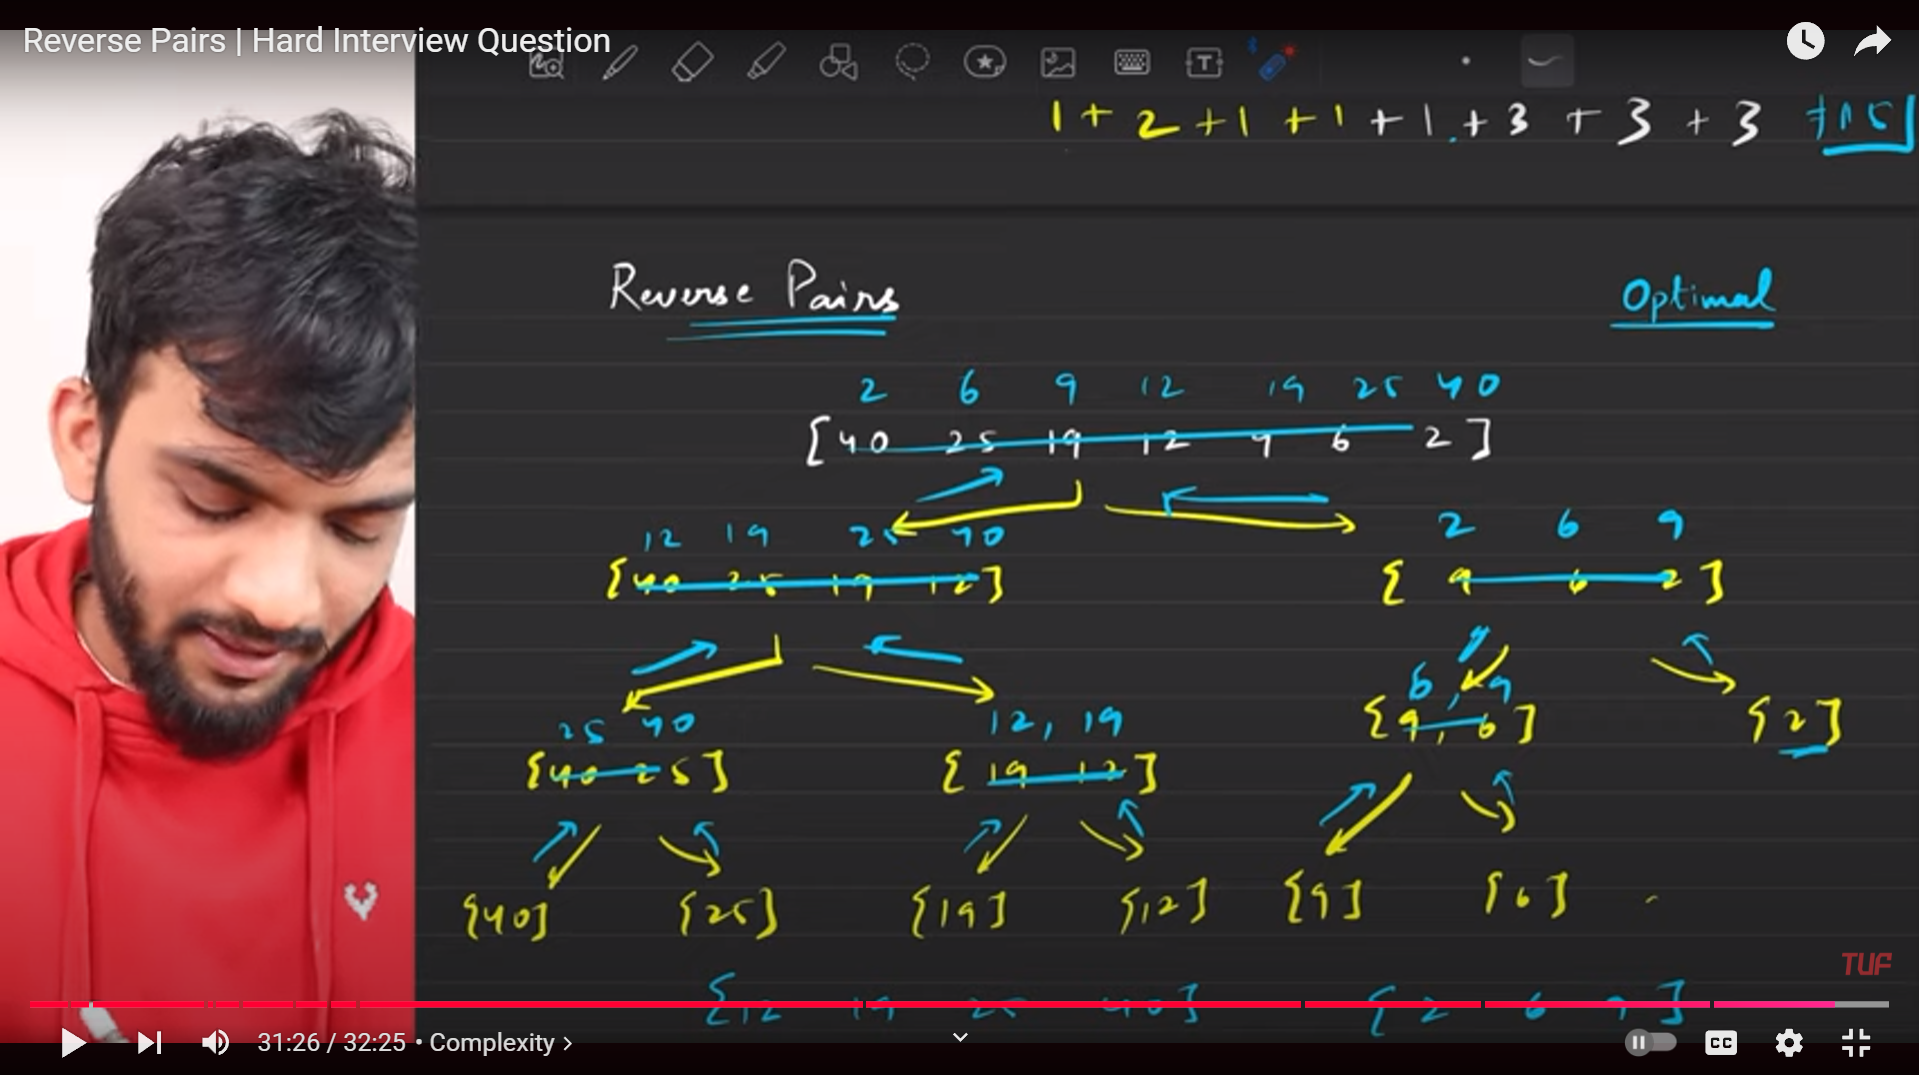 Reverse Pairs | Hard Interview Question
1 + 2 + 1 + 1 + 1 + 3 + 3 + 3 = 15
Reverse Pairs
Optimal
2 6 9 12 19 25 40
[40 25 19 12 9 6 2]
12 19 25 40
2 6 9
[40 25 19 12]
[9 6 2]
6, 9
25 40
12, 19
[9, 6]
[2]
[40 25]
[19 12]
[40]
[25]
[19]
[12]
[9]
[6]
TUF
[12 19 25 40]
[2 6 9]
31:26 / 32:25 • Complexity >
CC